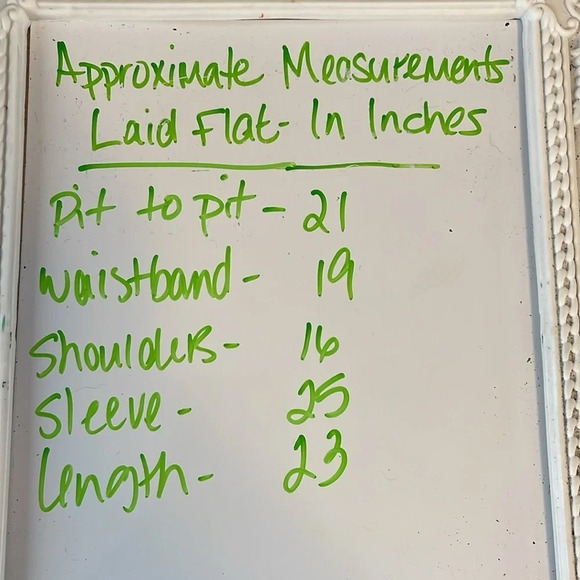 Approximate Measurements
Laid Flat- In Inches
pit to pit - 21
waistband - 19
Shoulders - 16
Sleeve - 25
length - 23